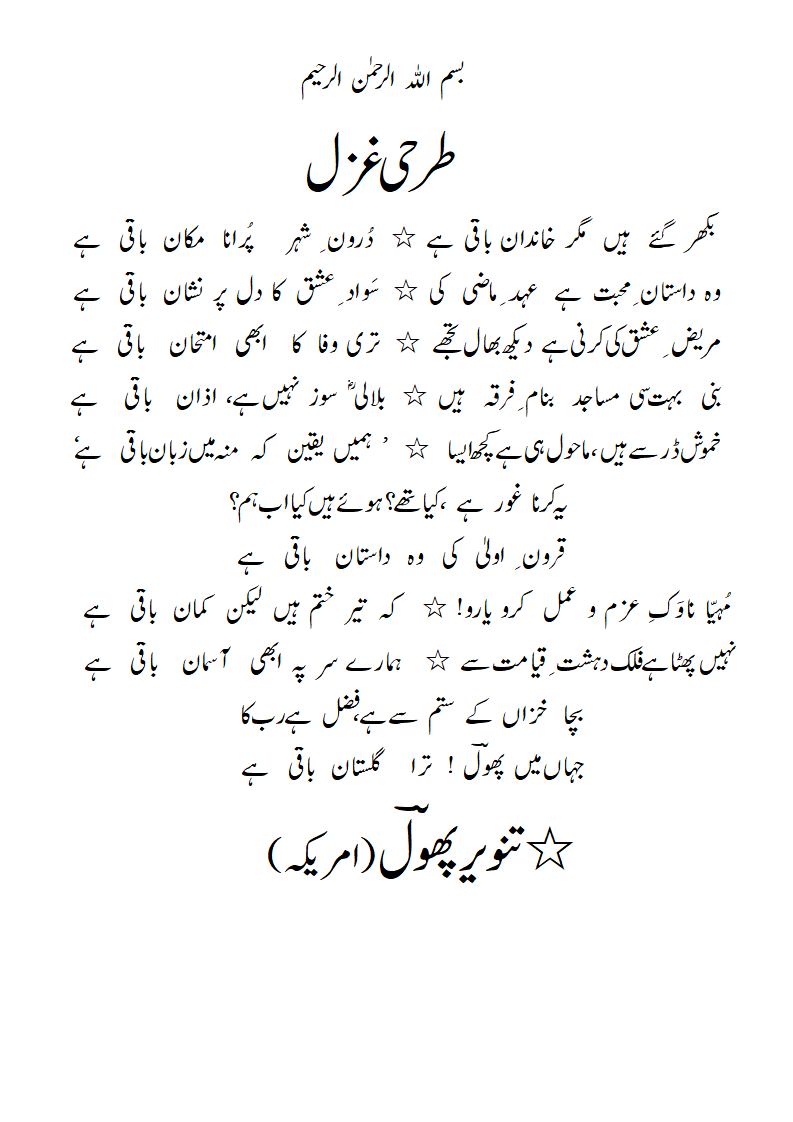 بسم اللہ الرحمٰن الرحیم
طرحی غزل
بکھر گئے ہیں مگر خاندان باقی ہے ☆ دُرونِ شہر پُرانا مکان باقی ہے
وہ داستانِ محبت ہے عہدِ ماضی کی ☆ سَوادِ عشق کا دل پر نشان باقی ہے
مریضِ عشق کی کرنی ہے دیکھ بھال تجھے ☆ تری وفا کا ابھی امتحان باقی ہے
بنی بہت سی مساجد بنامِ فرقہ ہیں ☆ بلالیؓ سوز نہیں ہے، اذان باقی ہے
خموش ڈر سے ہیں، ماحول ہی ہے کچھ ایسا ☆ ’ ہمیں یقین کہ منہ میں زبان باقی ہے‘
یہ کرنا غور ہے ،کیا تھے؟ ہوئے ہیں کیا اب ہم؟
قرونِ اولیٰ کی وہ داستان باقی ہے
مُہیّا ناوَکِ عزم و عمل کرو یارو! ☆ کہ تیر ختم ہیں لیکن کمان باقی ہے
نہیں پھٹا ہے فلک دہشتِ قیامت سے ☆ ہمارے سر پہ ابھی آسمان باقی ہے
بچا خزاں کے ستم سے ہے، فضل ہے رب کا
جہاں میں پھولؔ ! ترا گلستان باقی ہے
☆ تنویر پھولؔ (امریکہ)